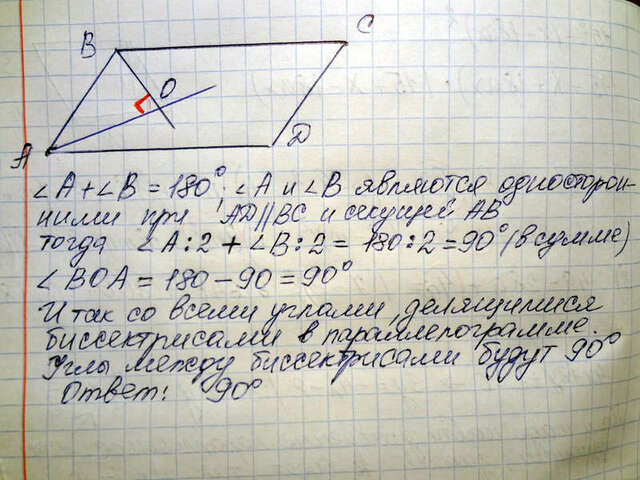 B
C
O
A
D
∠A+∠B = 180°; ∠A и ∠B являются односторон-
ними при AD||BC и секущей AB
тогда ∠A:2 + ∠B:2 = 180:2 = 90° (в сумме)
∠BOA = 180 - 90 = 90°
И так со всеми углами, делящимися
биссектрисами в параллелограмме.
Углы между биссектрисами будут 90°
Ответ: 90°